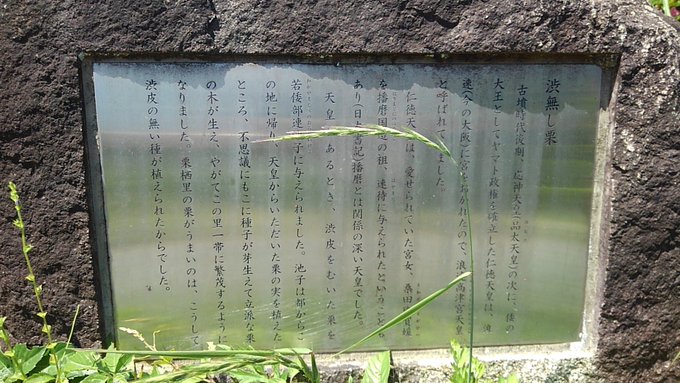 渋無し栗
古墳時代後期、応神天皇(品太天皇)の次に、倭の
大王としてヤマト政権を確立した仁徳天皇は、難
速(今の大阪)に宮をおかれたので、浪速高津宮天皇
と呼ばれていました。
仁徳天皇は、愛せられていた宮女、桑田
を播磨国造の祖、速待に与えられたということも
あり(日本書記)播磨とは関係の深い天皇でした。
天皇はあるとき、渋皮をむいた栗を
若倭部連池子に与えられました。池子は都からこ
の地に帰り、天皇からいただいた栗の実を植えた
ところ、不思議にもここに種子が芽生えて立派な栗
の木が生え、やがてこの里一帯に繁茂するように
なりました。栗栖里の栗がうまいのは、こうして、
渋皮の無い種が植えられたからでした。